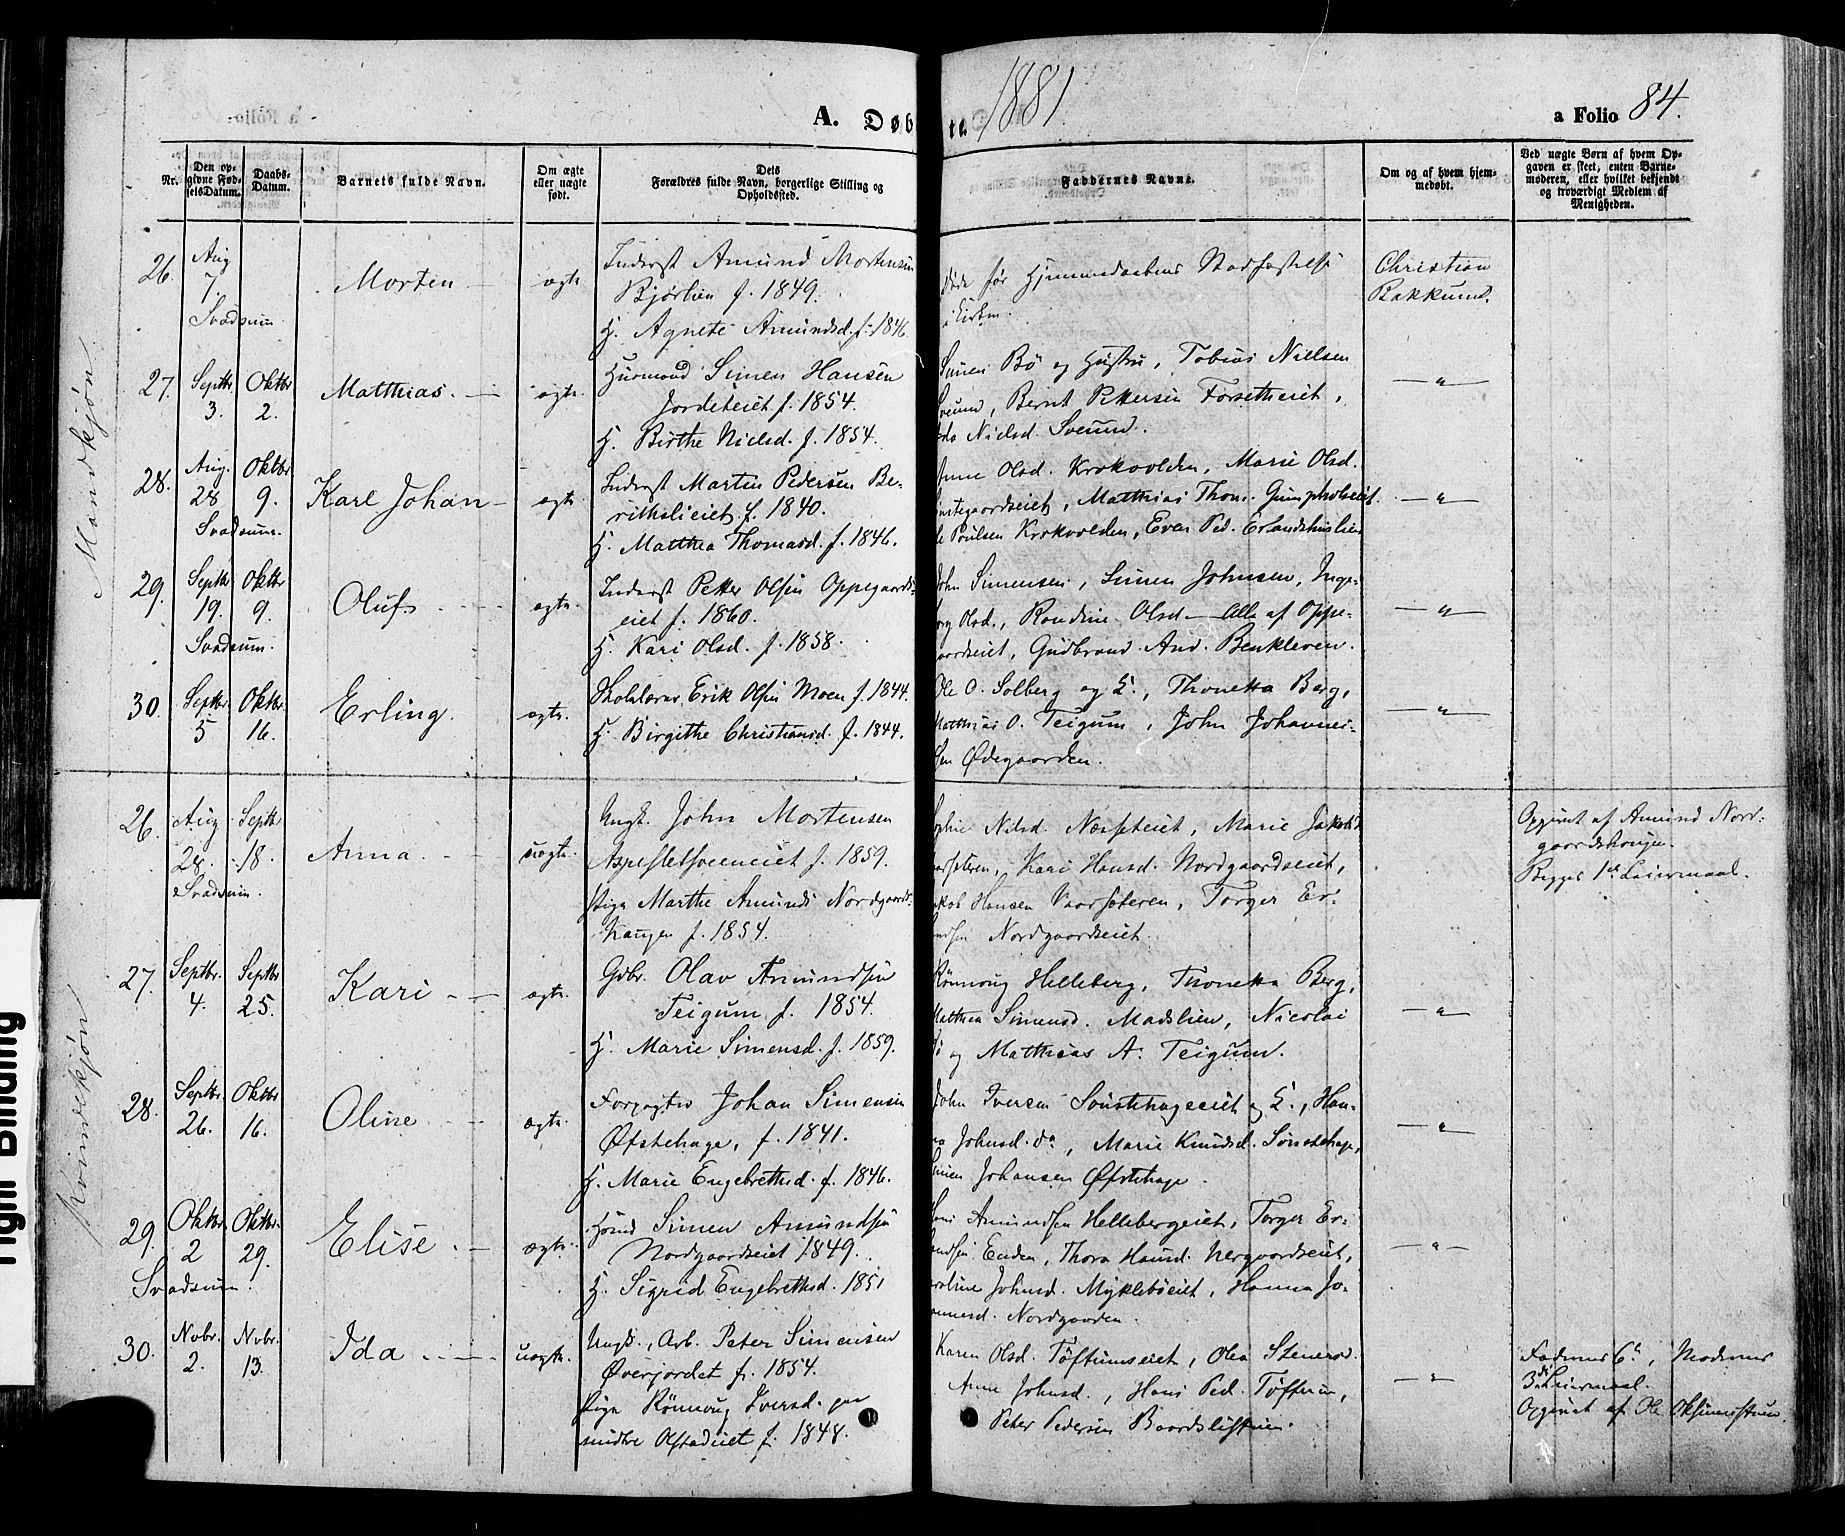 1881
a Folio 84.
A. Døbte
Nr.
Den opgivne Fødsels Datum.
Daabs-Datum.
Barnets fulde Navn.
Om ægte eller uægte født.
Dets Forældres fulde Navn, borgerlige Stilling og Opholdssted.
Faddernes Navne.
Om og af hvem hjemmedøbt.
Ved uægte Børn af hvem Opgaven er skeet, enten Barnemoderen, eller hvilket bekjendt og troværdigt Medlem af Menigheden.
Mandkjøn
26. Aug 7 Svadsum
Morten
ægte
Inderst Amund Mortensen
Bjørlien f. 1849.
H. Agnete Amundsd. f. 1846
Døde før Hjemmedaabens Stadfæstelse
i Kirken.
Christian
Bakkum.
27. Septbr 3. Oktbr 2.
Matthias.
ægte
Huusmand Simen Hansen
Jordeteiet f. 1854.
H. Birthe Nielsd. f. 1854.
Simen Bø og Hustru, Tobias Nielsen
Sveum, Bernt Pettersen Forsetheiet,
Nielsd. Sveum.
28. Aug. 28 Oktbr 9. Svadsum.
Karl Johan
ægte
Inderst Martin Pedersen Be-
f. 1840.
H. Matthea Thomasd. f. 1846.
Anne Olsd. Krokvolden, Marie Olsd.
Matthias Thom.
Poulsen Krokvolden, Even Ped. Erlandhuslien
29. Septbr 19. Oktbr 9. Svadsum.
Oluf
ægte
Inderst Petter Olsen Oppegaards-
eiet f. 1860.
H. Kari Olsd. f. 1858.
John Simensen, Simen Johnsen, Inge-
borg Olsd., Rondine Olsd – Alle af Oppe-
gaardseiet, Gudbrand And. Benkleven.
30. Septbr. 5 Oktbr. 16.
Erling.
ægte
Skolelærer Erik Olsen Moen f. 1844.
H. Birgithe Christiansd. f. 1844.
Ole O. Solberg og H., Thonetta Berg,
Matthias O. Teigum, John Johannes-
sen Ødegaarden.
Kvindekjøn
26. Aug 28. Septbr 18. Svadsum.
Anna
uægte
Ungk. John Mortensen
f. 1859.
Pige Marthe Amunds Nordgaards-
haugen f. 1854.
Nilsd. Marie Jakobsd
Kari Hansd. Nordgaardseiet,
Jakob Hansen Torger Er-
landsen Nordgaardseiet.
Opgivet af Amund Nord-
gaardshaugen.
Begges 1ste Leiermaal.
27. Septbr. 4. Septbr 25.
Kari
ægte
Gdbr. Olav Amundsen
Teigum f. 1854.
H. Marie Simensd. f. 1859.
Rønnoug Helleberg, Thonetta Berg,
Matthea Simensd. Madslien, Nicolai
Bø og Matthias A. Teigum.
28. Septbr 26. Oktbr 16.
Oline
ægte
Forpagter Johan Simensen
Øfstehage, f. 1841.
H. Marie Engebrethsd. f. 1846.
John Iversen og H., Han-
na Johnsd. do, Marie Knudsd.
Simen Johansen Øfstehage.
29. Oktbr. 2 Oktbr. 29. Svadsum.
Elise
ægte
Hmd Simen Amundsen
Nordgaardseiet 1849.
H. Sigrid Engebrethsd. 1851
Hans Amundsen Hellebergeiet, Torger Er-
landsen Enden, Thora Hansd. Nergaardseiet,
Karoline Johnsd. Myklebøeiet, Hanna Jo-
hannesd. Nordgaarden.
30. Novbr. 2. Novbr. 13.
Ida
uægte.
Ungk., Arb. Peter Simensen
Øverjordet f. 1854.
Pige Rønnoug Iversd. paa
nedre Olstadeiet f. 1848.
Karen Olsd. Tøftumseiet, Olea Stenersd.
Anne Johnsd., Hans Ped. Tøftum,
Peter Pedersen Baardslistuen.
Faderens 6te, Moderens
3die Leiermaal.
Opgivet af Ole